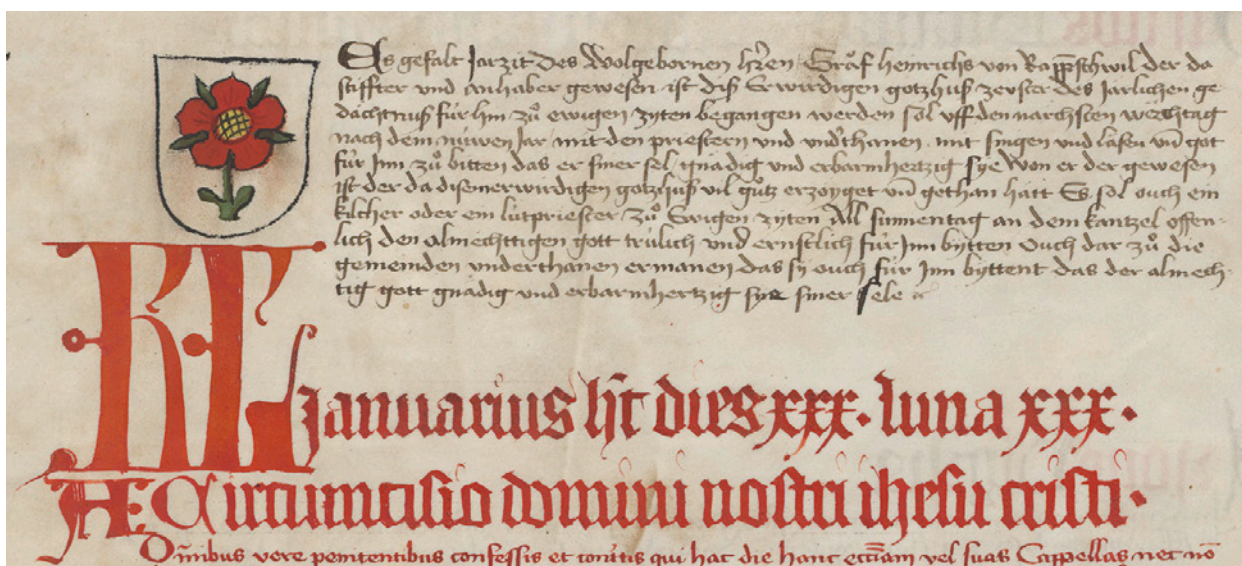 Es gefalt Jarzit des Wolgebornen hr̃en Graͦf heinrichs von Rapp̃schwil der da
stiffter vnd anhaber gewesen ist diß Erwirdigen gotzhuß zerster des Jarlichen ge
dachtnuß fúr Inn zuͦ ewigen zyten began̄gen werden sol vff den nachsten wechtag
nach dem núwen Jar mit den priestern vnd vnd'thanen mit singen vnd laͤsen vn̄ got
fúr Inn zuͦ bitten das er siner sel gnädig vnd erbarmhertzig sye Won er der gewesen
ist der da disem erwirdigen gotzhuß vil guͦtz erzoyget vn̄ gethan hatt Es sol ouch ein
kilcher oder ein lútpriester zuͦ Ewigen zyten All sunnentag an dem kantzel offen-
lich den almechttigen gott trúlich vnd ernstlich fúr Jnn bytten Ouch dar zuͦ die
gemeinden vnderthanen ermanen das sy ouch fúr Jnn byttent das der almech-
tig gott gnadig vnd erbarmhertzig sye siner sele
KL Januarius ht̄ dies xxx. luna xxx.
A Circumcisio domini nostri ihesu cristi.
Om̄nibus vere penitentibus confessis et contritis qui hac die hanc eccl̄iam vel suas Cappellas nec nō